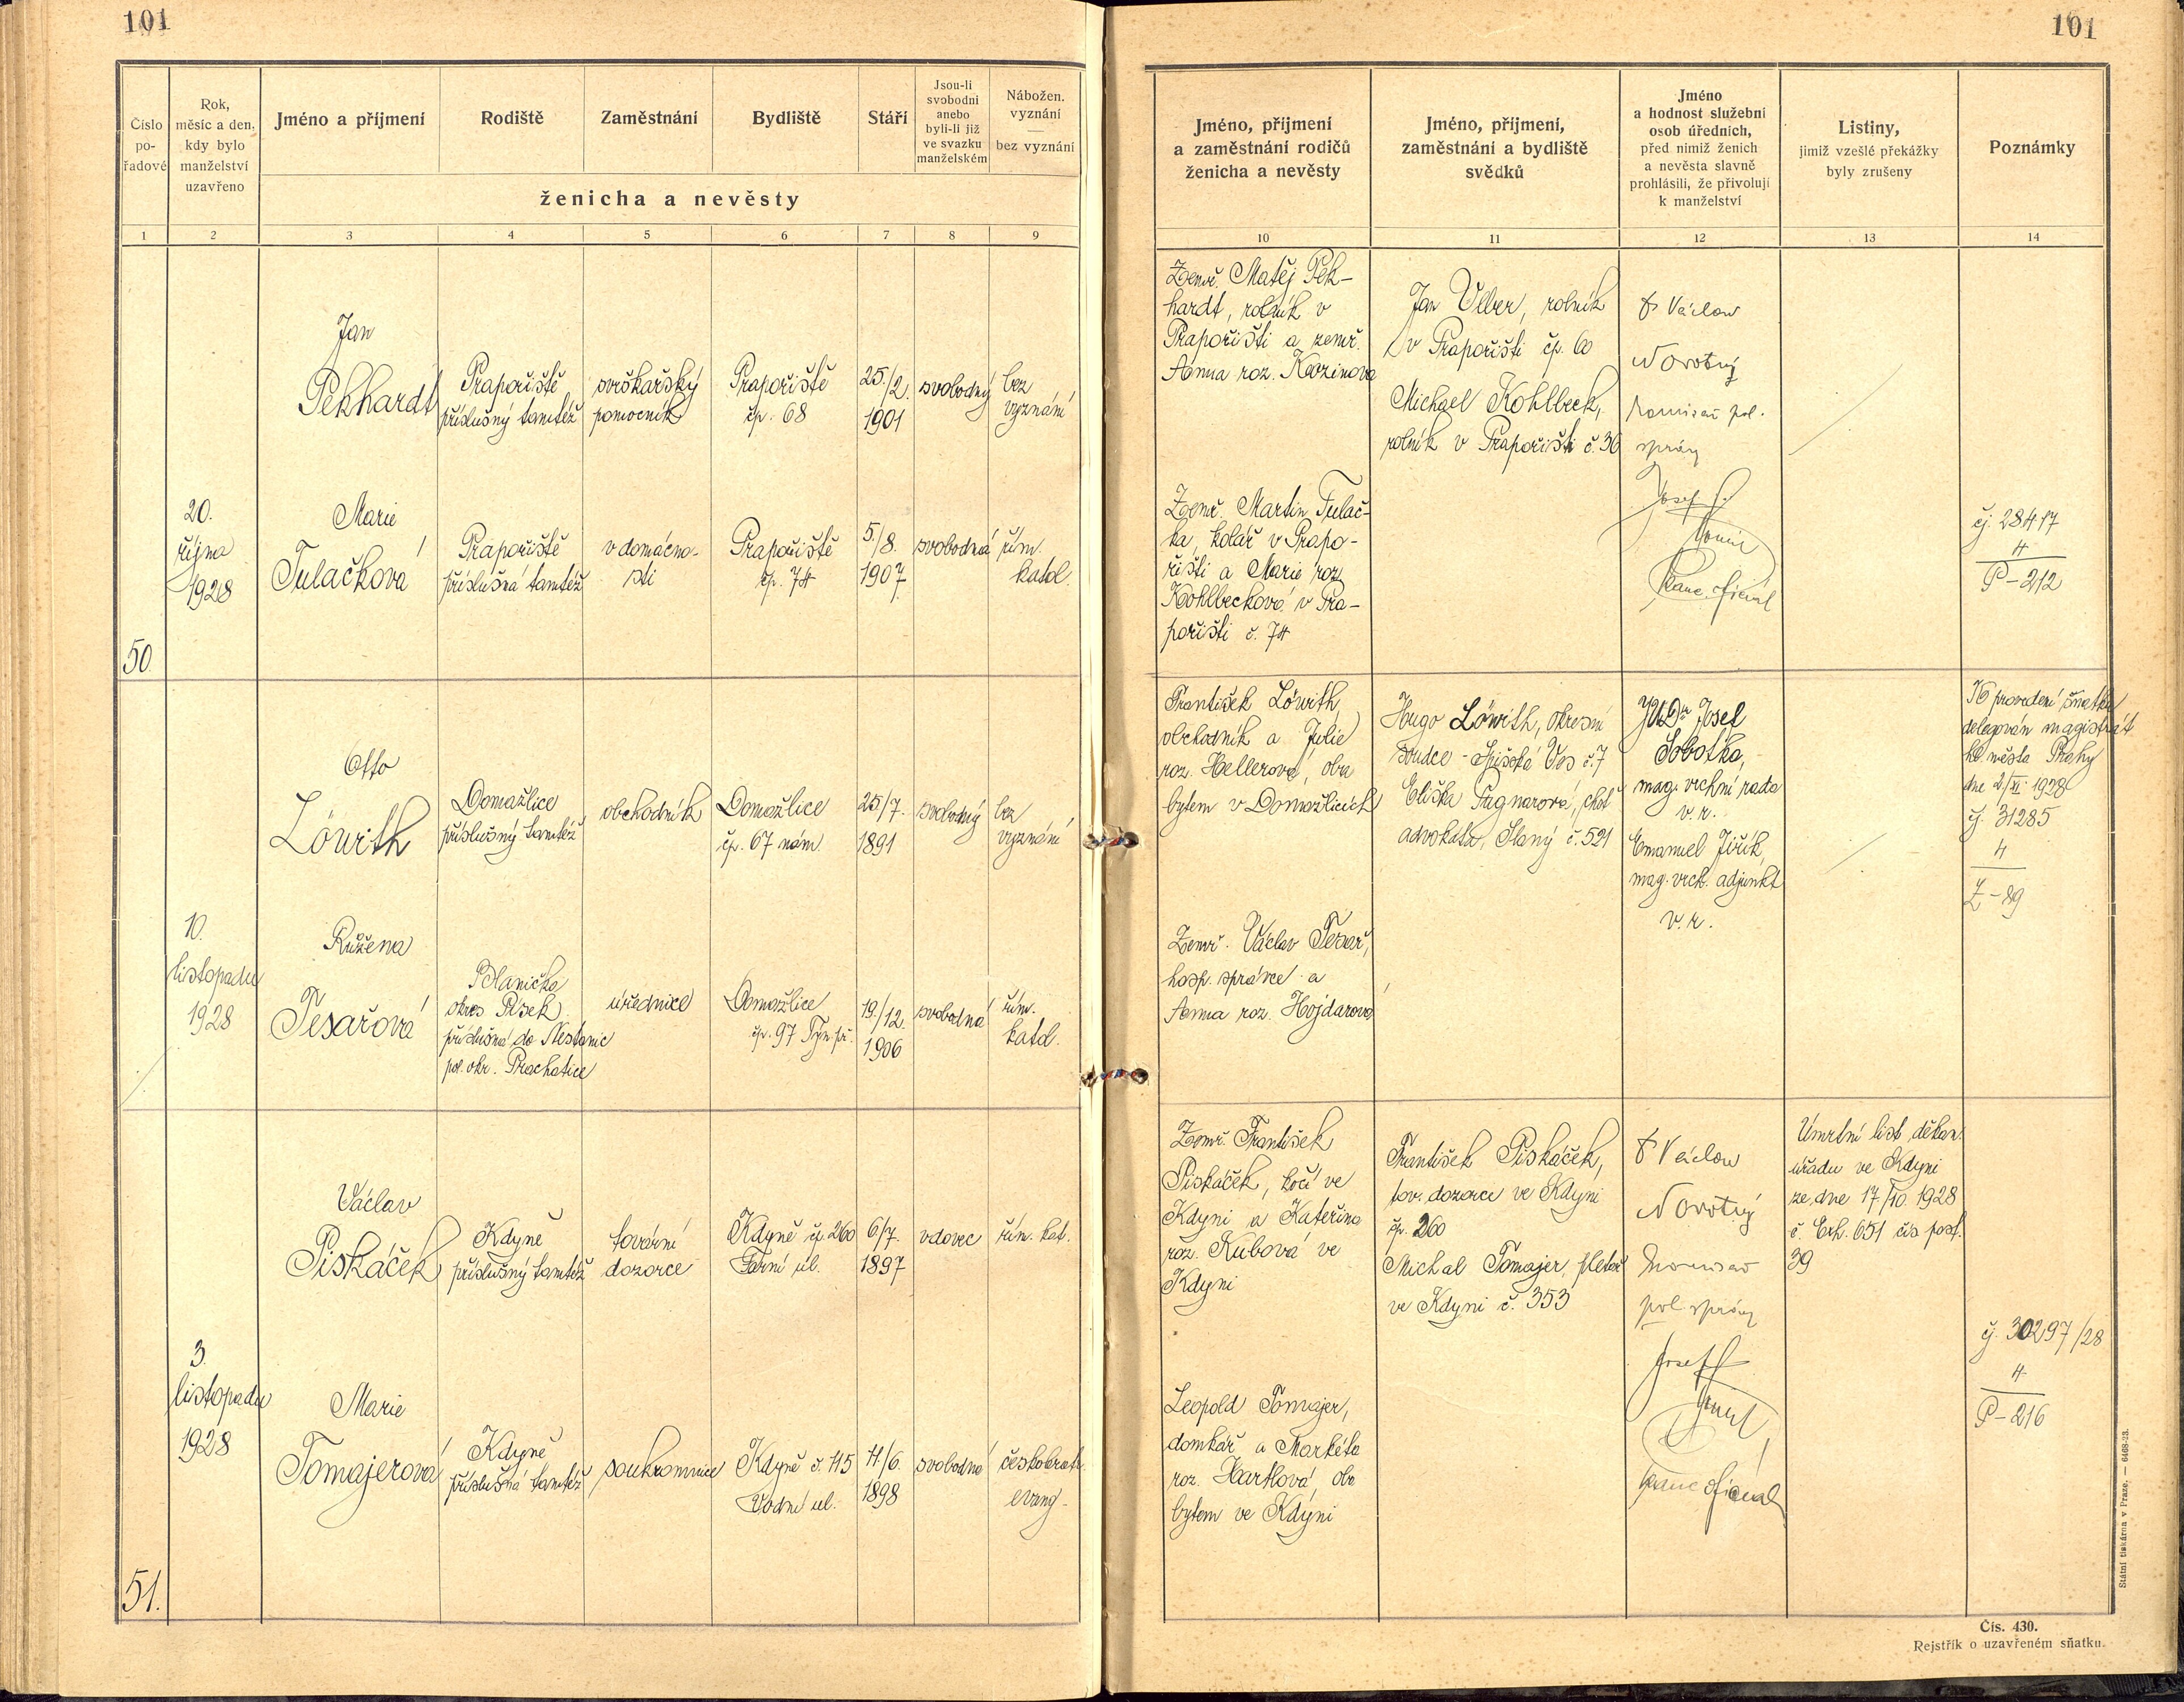 101
101
Číslo
po-
řadové
Rok,
měsíc a den,
kdy bylo
manželství
uzavřeno
Jméno a příjmení
Rodiště
Zaměstnání
Bydliště
Stáří
Jsou-li
svobodni
anebo
byli-li již
ve svazku
manželském
Nábožen.
vyznání
—
bez vyznání
ženicha a nevěsty
1 2 3 4 5 6 7 8 9
Jméno, příjmení
a zaměstnání rodičů
ženicha a nevěsty
Jméno, příjmení,
zaměstnání a bydliště
svědků
Jméno
a hodnost služební
osob úředních,
před nimiž ženich
a nevěsta slavně
prohlásili, že přivolují
k manželství
Listiny,
jimiž vzešlé překážky
byly zrušeny
Poznámky
10 11 12 13 14
50.
20.
října
1928
Jan
Pekhardt
Prapořiště
příslušný tamtéž
svrškařský
pomocník
Prapořiště
čp. 68
25./2.
1901
svobodný
bez
vyznání
Marie
Tulačková
Prapořiště
příslušná tamtéž
v domácno-
sti
Prapořiště
čp. 74
5./8.
1907
svobodná
řím.
katol.
Zemř. Matěj Pek-
hardt, rolník v
Prapořišti a zemř.
Anna roz. Kozinova
Zemř. Martin Tulač-
ka, kolář v Prapo-
řišti a Marie roz.
Kohlbeckova v Pra-
pořišti č. 74
Jan Ulber, rolník
v Prapořišti čp. 60
Michael Kohlbeck,
rolník v Prapořišti č. 36
Václav
Novotný
komisař pol.
správy
Josef
kanc. oficiál
čj. 28417
4
P-212
10.
listopadu
1928
Otto
Löwith
Domažlice
příslušný tamtéž
obchodník
Domažlice
čp. 67 nám.
25./7.
1891
svobodný
bez
vyznání
Růžena
Tesařová
Blanička
okres Písek
příslušná do Nestanic
pol. okr. Prachatice
úřednice
Domažlice
čp. 97 Týn. př.
19./12.
1906
svobodná
řím.
katol.
František Löwith,
obchodník a Julie
roz. Hellerová, oba
bytem v Domažlicích
Zemř. Václav Tesař,
hosp. správce a
Anna roz. Hojdarová
Hugo Löwith, okresní
soudce - Spišská Ves č. 7
Eliška Pagnarová, choť
advokáta, Slaný č. 521
JUDr Josef
Sobotka,
mag. vrchní rada
v. r.
Emanuel Jiřík,
mag. vrch. adjunkt
v. r.
K provedení sňatku
delegován magistrát
hl. města Prahy
dne 2/XI 1928
čj. 31285
4
Z-89
51.
3.
listopadu
1928
Václav
Piskáček
Kdyně
příslušný tamtéž
tovární
dozorce
Kdyně čp. 260
Farní ul.
6/7.
1897
vdovec
řím. kat.
Marie
Tomajerová
Kdyně
příslušná tamtéž
soukromnice
Kdyně č. 115
Vodní ul.
11/6.
1898
svobodná
českobratr.
evang.
Zemř. František
Piskáček, kočí ve
Kdyni a Kateřina
roz. Kubová ve
Kdyni
Leopold Tomajer,
domkář a Markéta
roz. Hartlová, oba
bytem ve Kdyni
František Piskáček,
tov. dozorce ve Kdyni
čp. 260
Michal Tomajer, pletař
ve Kdyni č. 353
Václav
Novotný
komisař
pol. správy
Josef
kanc. oficiál
Úmrtní list děkan.
úřadu ve Kdyni
ze dne 17/10. 1928
č. Exh. 651 čís. post.
39
čj. 30297/28
4
P-216
Státní tiskárna v Praze. — 6468-23.
Čís. 430.
Rejstřík o uzavřeném sňatku.